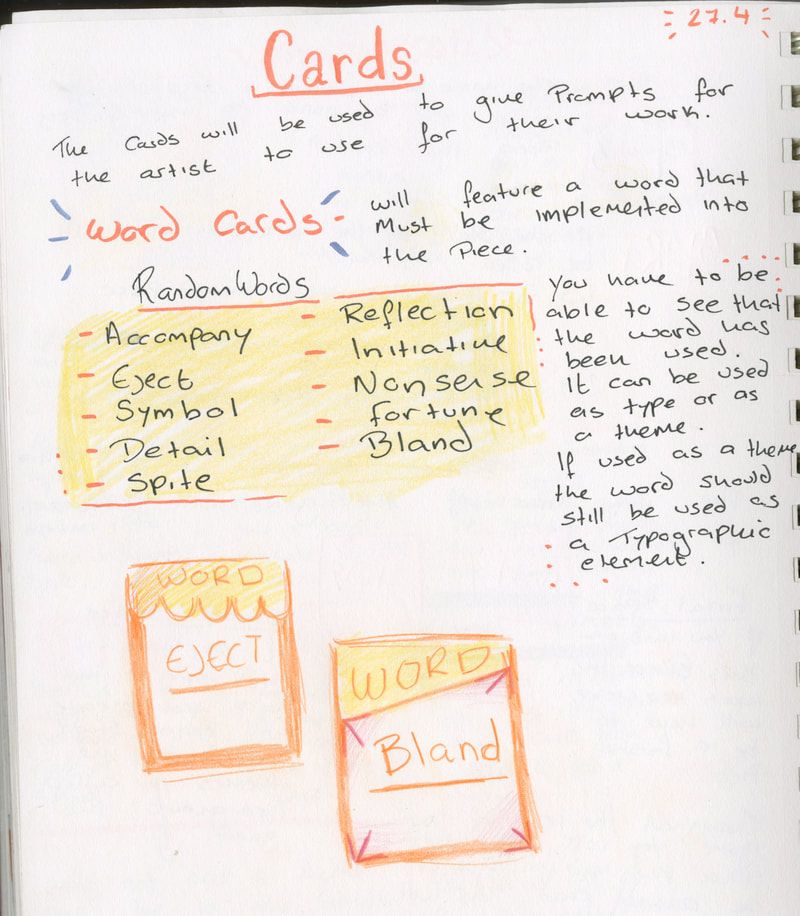 27.4
Cards
The Cards will be used to give Prompts for
the artist to use for their work.
Word Cards -
will feature a word that
Must be implemented into
the Piece.
Random Words
- Accompany
- Eject
- Symbol
- Detail
- Spite
- Reflection
- Initiative
- Nonsense
- fortune
- Bland
you have to be
able to see that
the word has
been used.
It can be used
as type or as
a theme.
If used as a theme
the word should
still be used as
a Typographic
element.
WORD
EJECT
WORD
Bland